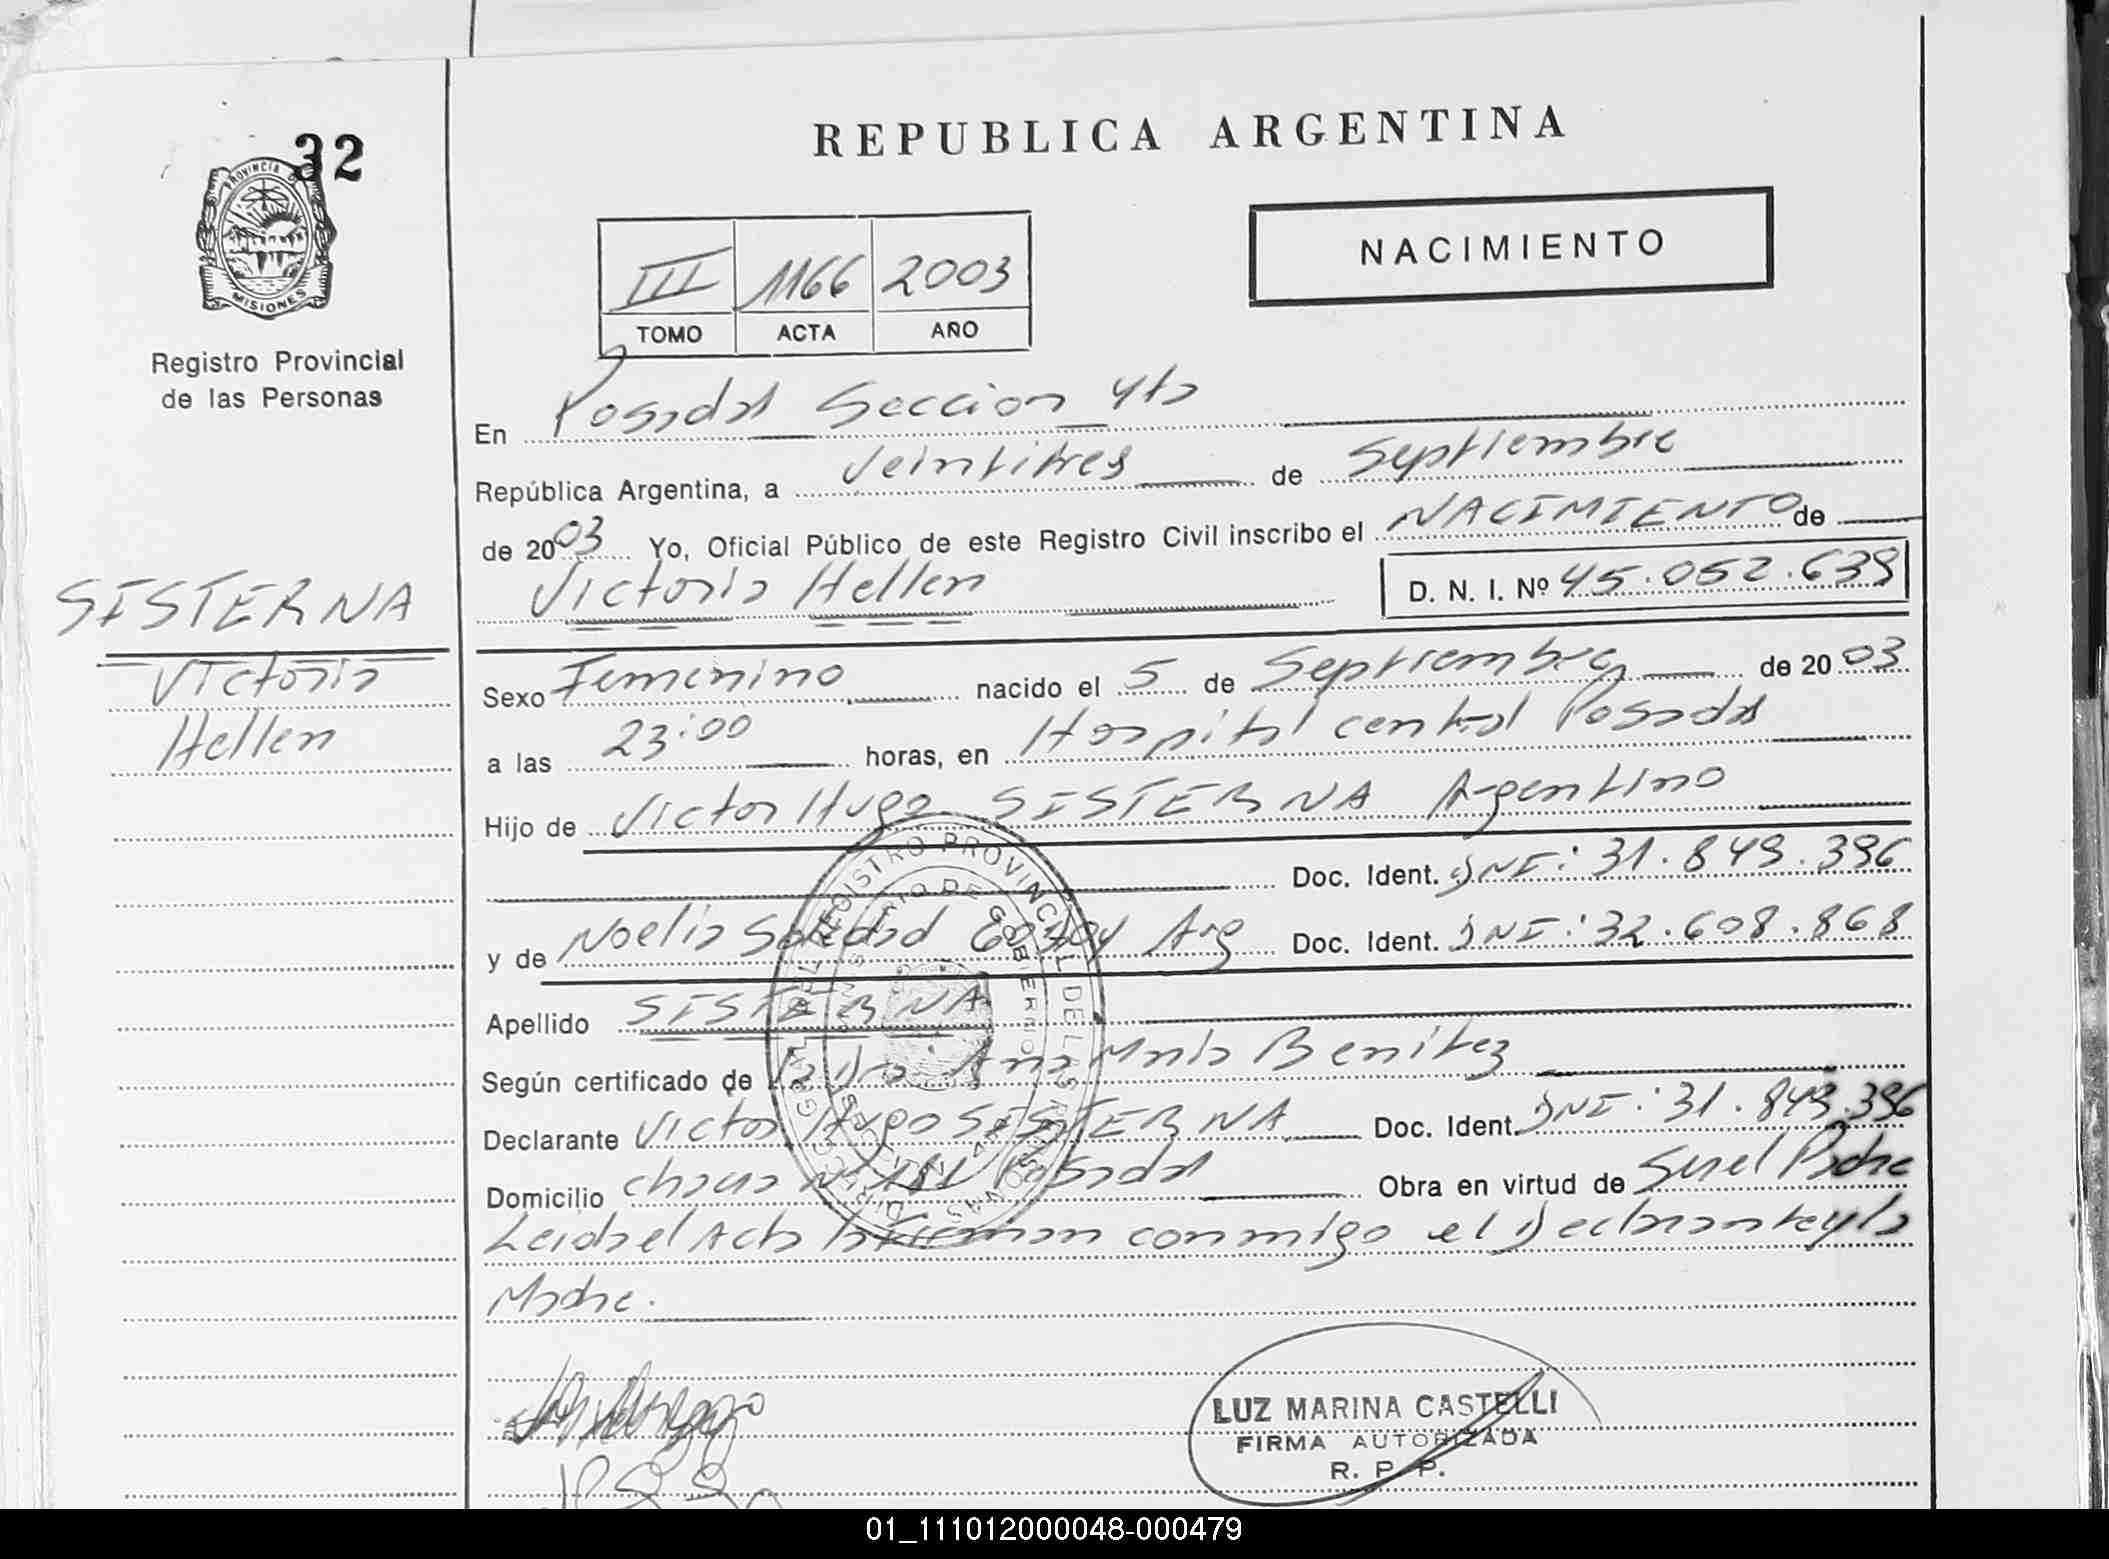 32
PROVINCIA DE
MISIONES
Registro Provincial
de las Personas
REPUBLICA ARGENTINA
NACIMIENTO
III 1166 2003
TOMO ACTA AÑO
En Posadas Seccion 4ta
República Argentina, a Veintitres de Septiembre
de 2003 Yo, Oficial Público de este Registro Civil inscribo el NACIMIENTO de
Victoria Hellen D. N. I. Nº 45.052.639
SISTERNA
Victoria
Hellen
Sexo Femenino nacido el 5 de Septiembre de 2003
a las 23:00 horas, en Hospital central Posadas
Hijo de Victor Hugo SISTERNA Argentino
Doc. Ident. DNI: 31.849.396
y de Noelia Soledad Godoy Arg Doc. Ident. DNI: 32.608.868
Apellido SISTERNA
Según certificado de Ana María Benitez
Declarante Victor Hugo SISTERNA Doc. Ident. DNI: 31.849.396
Domicilio chacra Nº 181 Posadas Obra en virtud de Ser el Padre
Leida el Acta la Firman conmigo el Declarante y la
Madre.
LUZ MARINA CASTELLI
FIRMA AUTORIZADA
R. P. P.
01_111012000048-000479